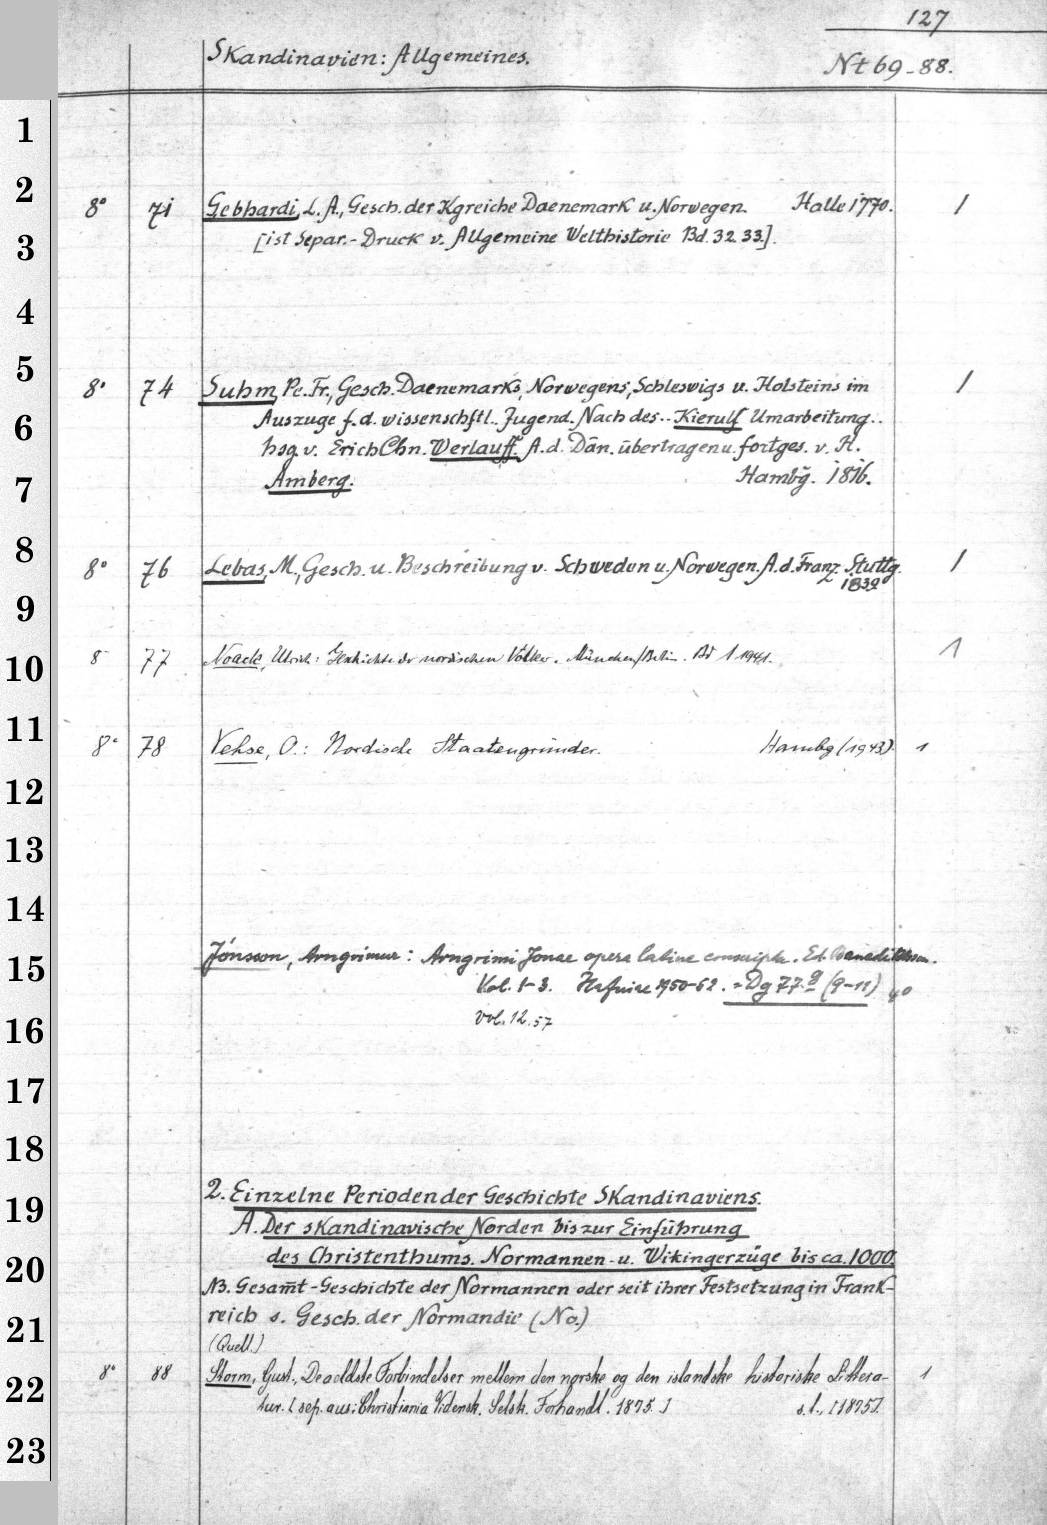 127
Skandinavien: Allgemeines.
Nt 69-88.
1
2
8° 71 Gebhardi, L. A., Gesch. der Kgreiche Daenemark u. Norwegen. Halle 1770. 1
3
[ist Separ.-Druck v. Allgemeine Welthistorie Bd. 32. 33.].
4
5
8° 74 Suhm, Pe. Fr., Gesch. Daenemarks, Norwegens, Schleswigs u. Holsteins im 1
6
Auszuge f. d. wissenschftl. Jugend. Nach des.. Kierulf Umarbeitung..
hsg. v. Erich Chn. Werlauff. A. d. Dän. übertragen u. fortges. v. H.
7
Amberg. Hambg. 1816.
8
8° 76 Lebas, M., Gesch. u. Beschreibung v. Schweden u. Norwegen. A. d. Franz. Stuttg. 1
1839
9
10
8° 77 Noack, Ulrich: Geschichte der nordischen Völker. München/Berlin. Bd 1 1941. 1
11
8° 78 Vehse, O.: Nordische Staatengründer. Hambg (1943). 1
12
13
14
15
Jónsson, Arngrimur: Arngrimi Jonae opera latine conscripta. Ed. Benediktsson.
Vol. 1-3. Hafniae 1950-52. = Dg 77.g (9-11) 4°
16
Vol. 12. 57
17
18
19
2. Einzelne Perioden der Geschichte Skandinaviens.
A. Der skandinavische Norden bis zur Einführung
20
des Christenthums. Normannen- u. Wikingerzüge bis ca. 1000.
NB. Gesam̅t-Geschichte der Normannen oder seit ihrer Festsetzung in Frank-
21
reich s. Gesch. der Normandie (No.)
(Quell.)
22
8° 88 Storm, Gust., De aeldste Forbindelser mellem den norske og den islandske historiske Littera- 1
tur. [sep. aus: Christiania Vidensk. Selsk. Forhandl. 1875.] s. l., [1875].
23